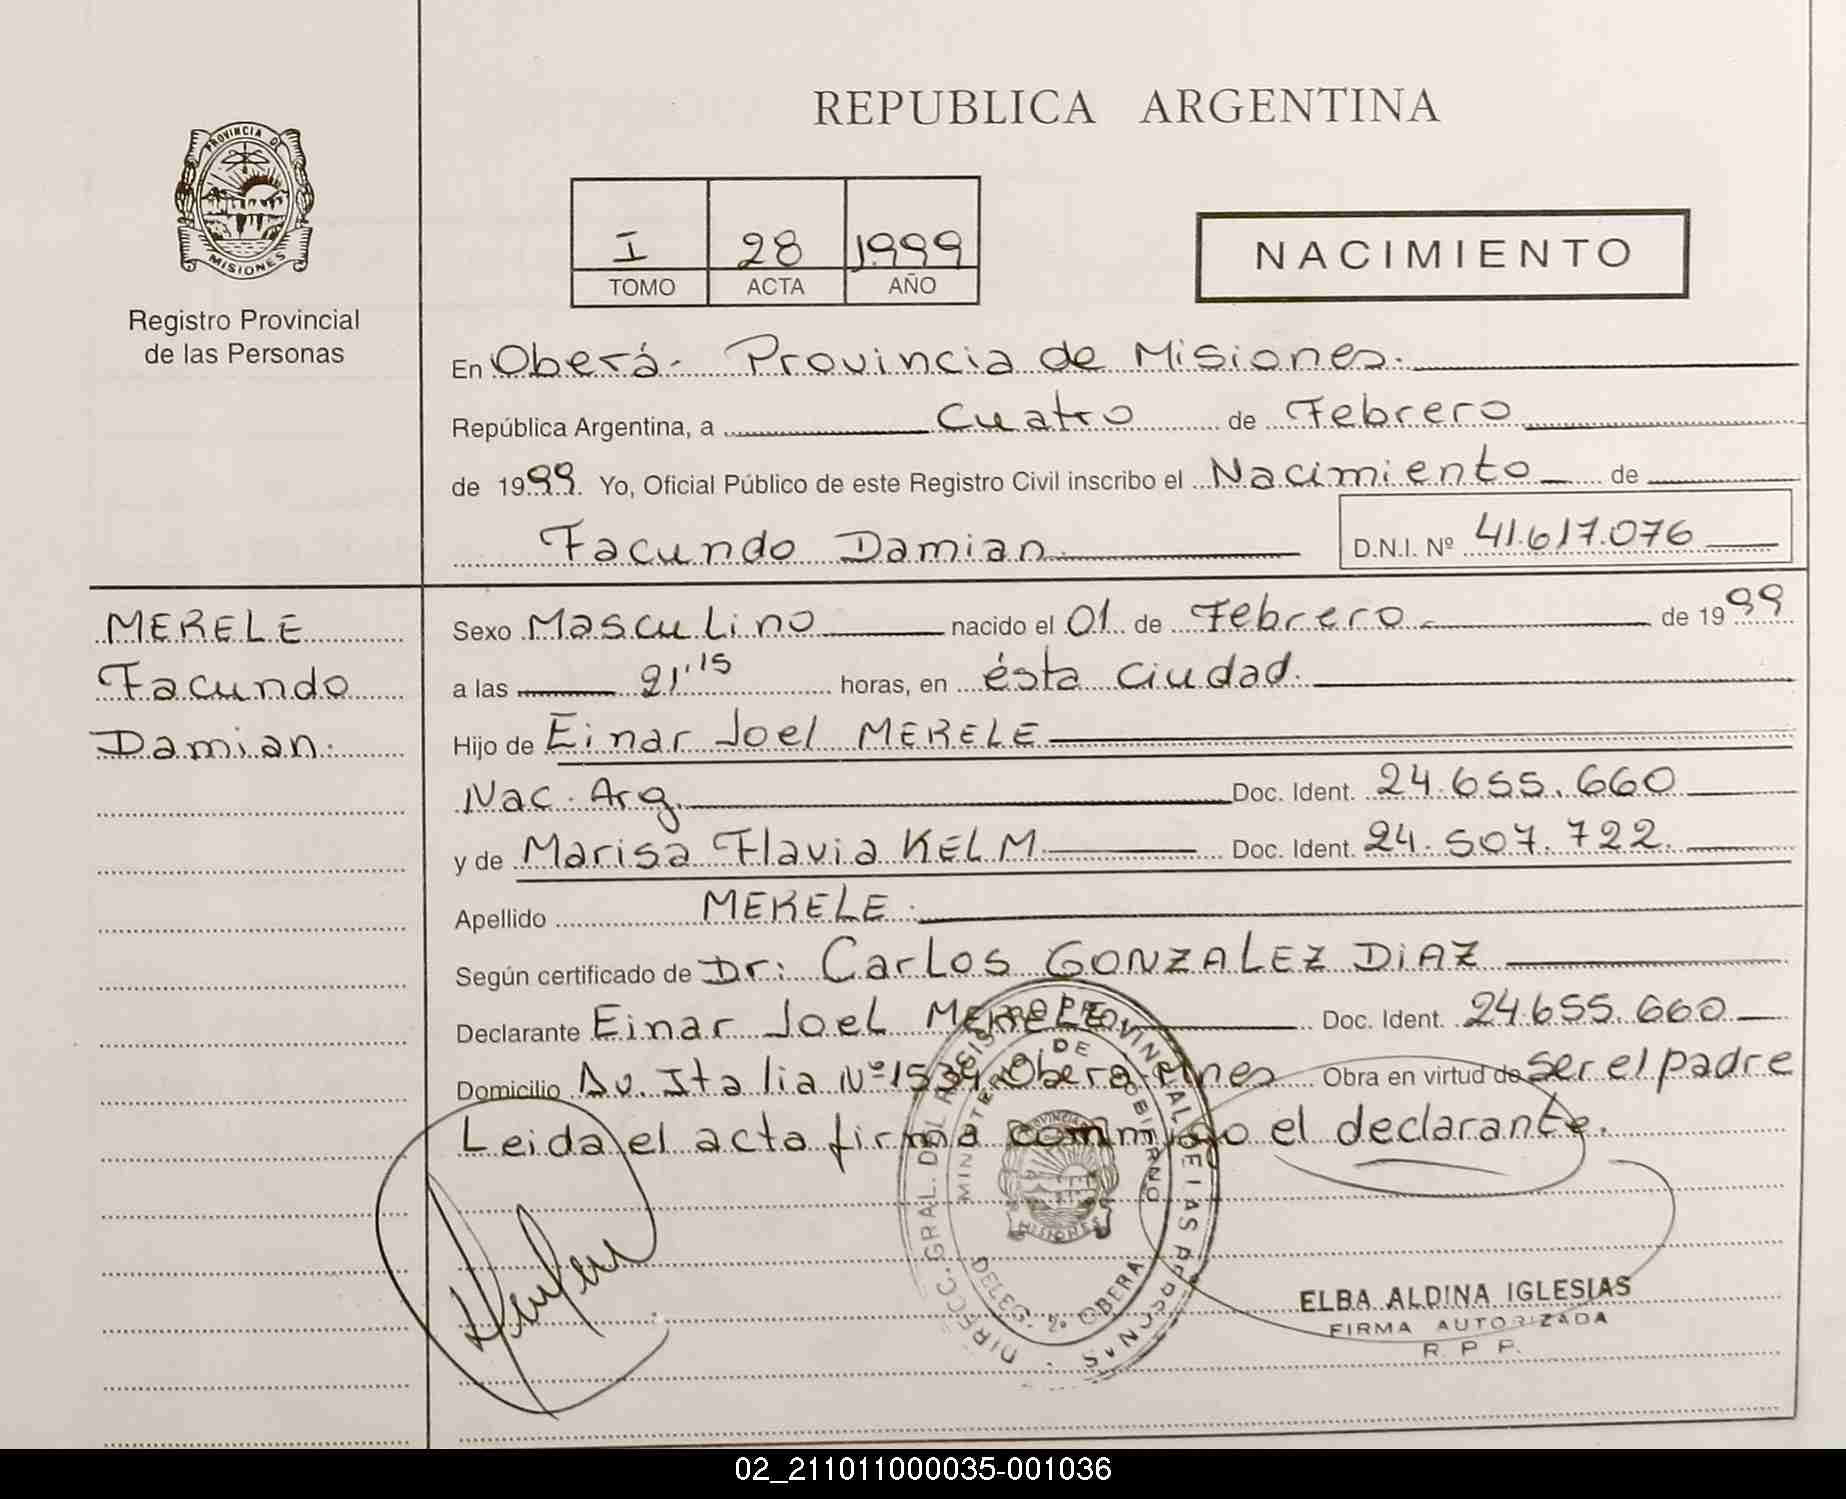 REPUBLICA ARGENTINA
PROVINCIA DE
MISIONES
Registro Provincial
de las Personas
I 28 1999
TOMO ACTA AÑO
NACIMIENTO
En Oberá - Provincia de Misiones.
República Argentina, a Cuatro de Febrero
de 1999. Yo, Oficial Público de este Registro Civil inscribo el Nacimiento de
Facundo Damian D.N.I. Nº 41.617.076
MERELE
Facundo
Damian.
Sexo Masculino nacido el 01 de Febrero de 1999
a las 21'15 horas, en ésta ciudad.
Hijo de Einar Joel MERELE
Nac. Arg. Doc. Ident. 24.655.660
y de Marisa Flavia KELM Doc. Ident. 24.507.722.
Apellido MERELE.
Según certificado de Dr: Carlos GONZALEZ DIAZ
Declarante Einar Joel MERELE Doc. Ident. 24.655.660
Domicilio Av. Italia Nº 1534 Oberá-Mnes Obra en virtud de ser el padre
Leida el acta firma conmigo el declarante.
DIRECC. GRAL. DEL REGISTRO PROVINCIAL DE LAS PERSONAS
MINISTERIO DE GOBIERNO
PROVINCIA
MISIONES
DELEG. 2º OBERA
ELBA ALDINA IGLESIAS
FIRMA AUTORIZADA
R. P. P.
02_211011000035-001036